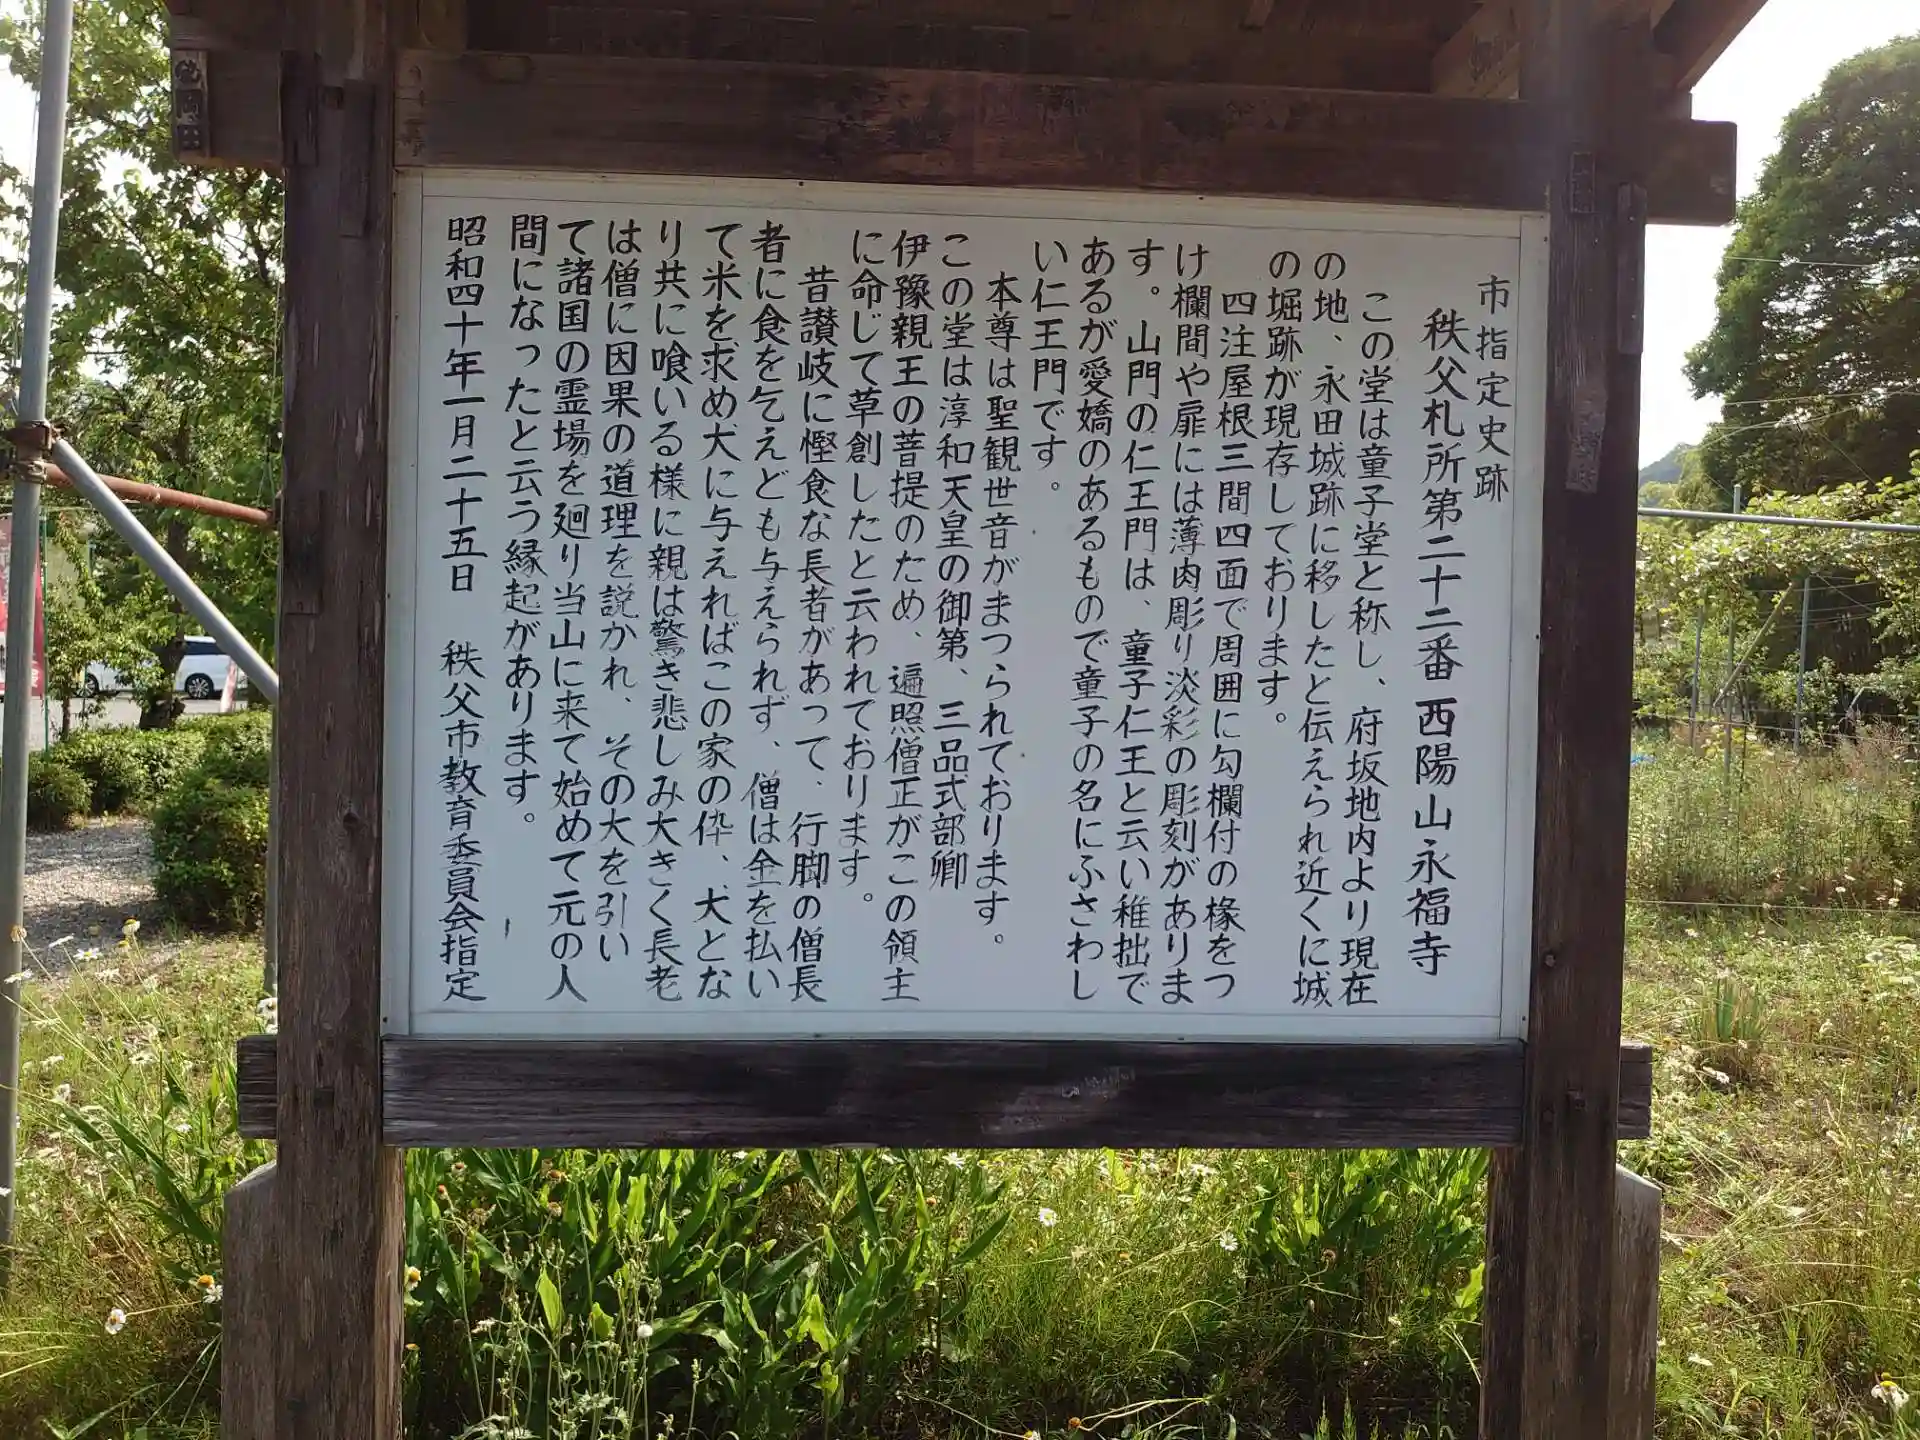 市指定史跡
秩父札所第二十二番 西陽山永福寺
この堂は童子堂と称し、府坂地内より現在
の地、永田城跡に移したと伝えられ近くに城
の堀跡が現存しております。
四注屋根三間四面で周囲に勾欄付の椽をつ
け欄間や扉には薄肉彫り淡彩の彫刻がありま
す。山門の仁王門は、童子仁王と云い稚拙で
あるが愛嬌のあるもので童子の名にふさわし
い仁王門です。
本尊は聖観世音がまつられております。
この堂は淳和天皇の御第、三品式部卿
伊豫親王の菩提のため、遍照僧正がこの領主
に命じて草創したと云われております。
昔讃岐に慳食な長者があって、行脚の僧長
者に食を乞えども与えられず、僧は金を払い
て米を求め犬に与えればこの家の倅、犬とな
り共に喰いる様に親は驚き悲しみ大きく長老
は僧に因果の道理を説かれ、その犬を引い
て諸国の霊場を廻り当山に来て始めて元の人
間になったと云う縁起があります。
昭和四十年一月二十五日 秩父市教育委員会指定